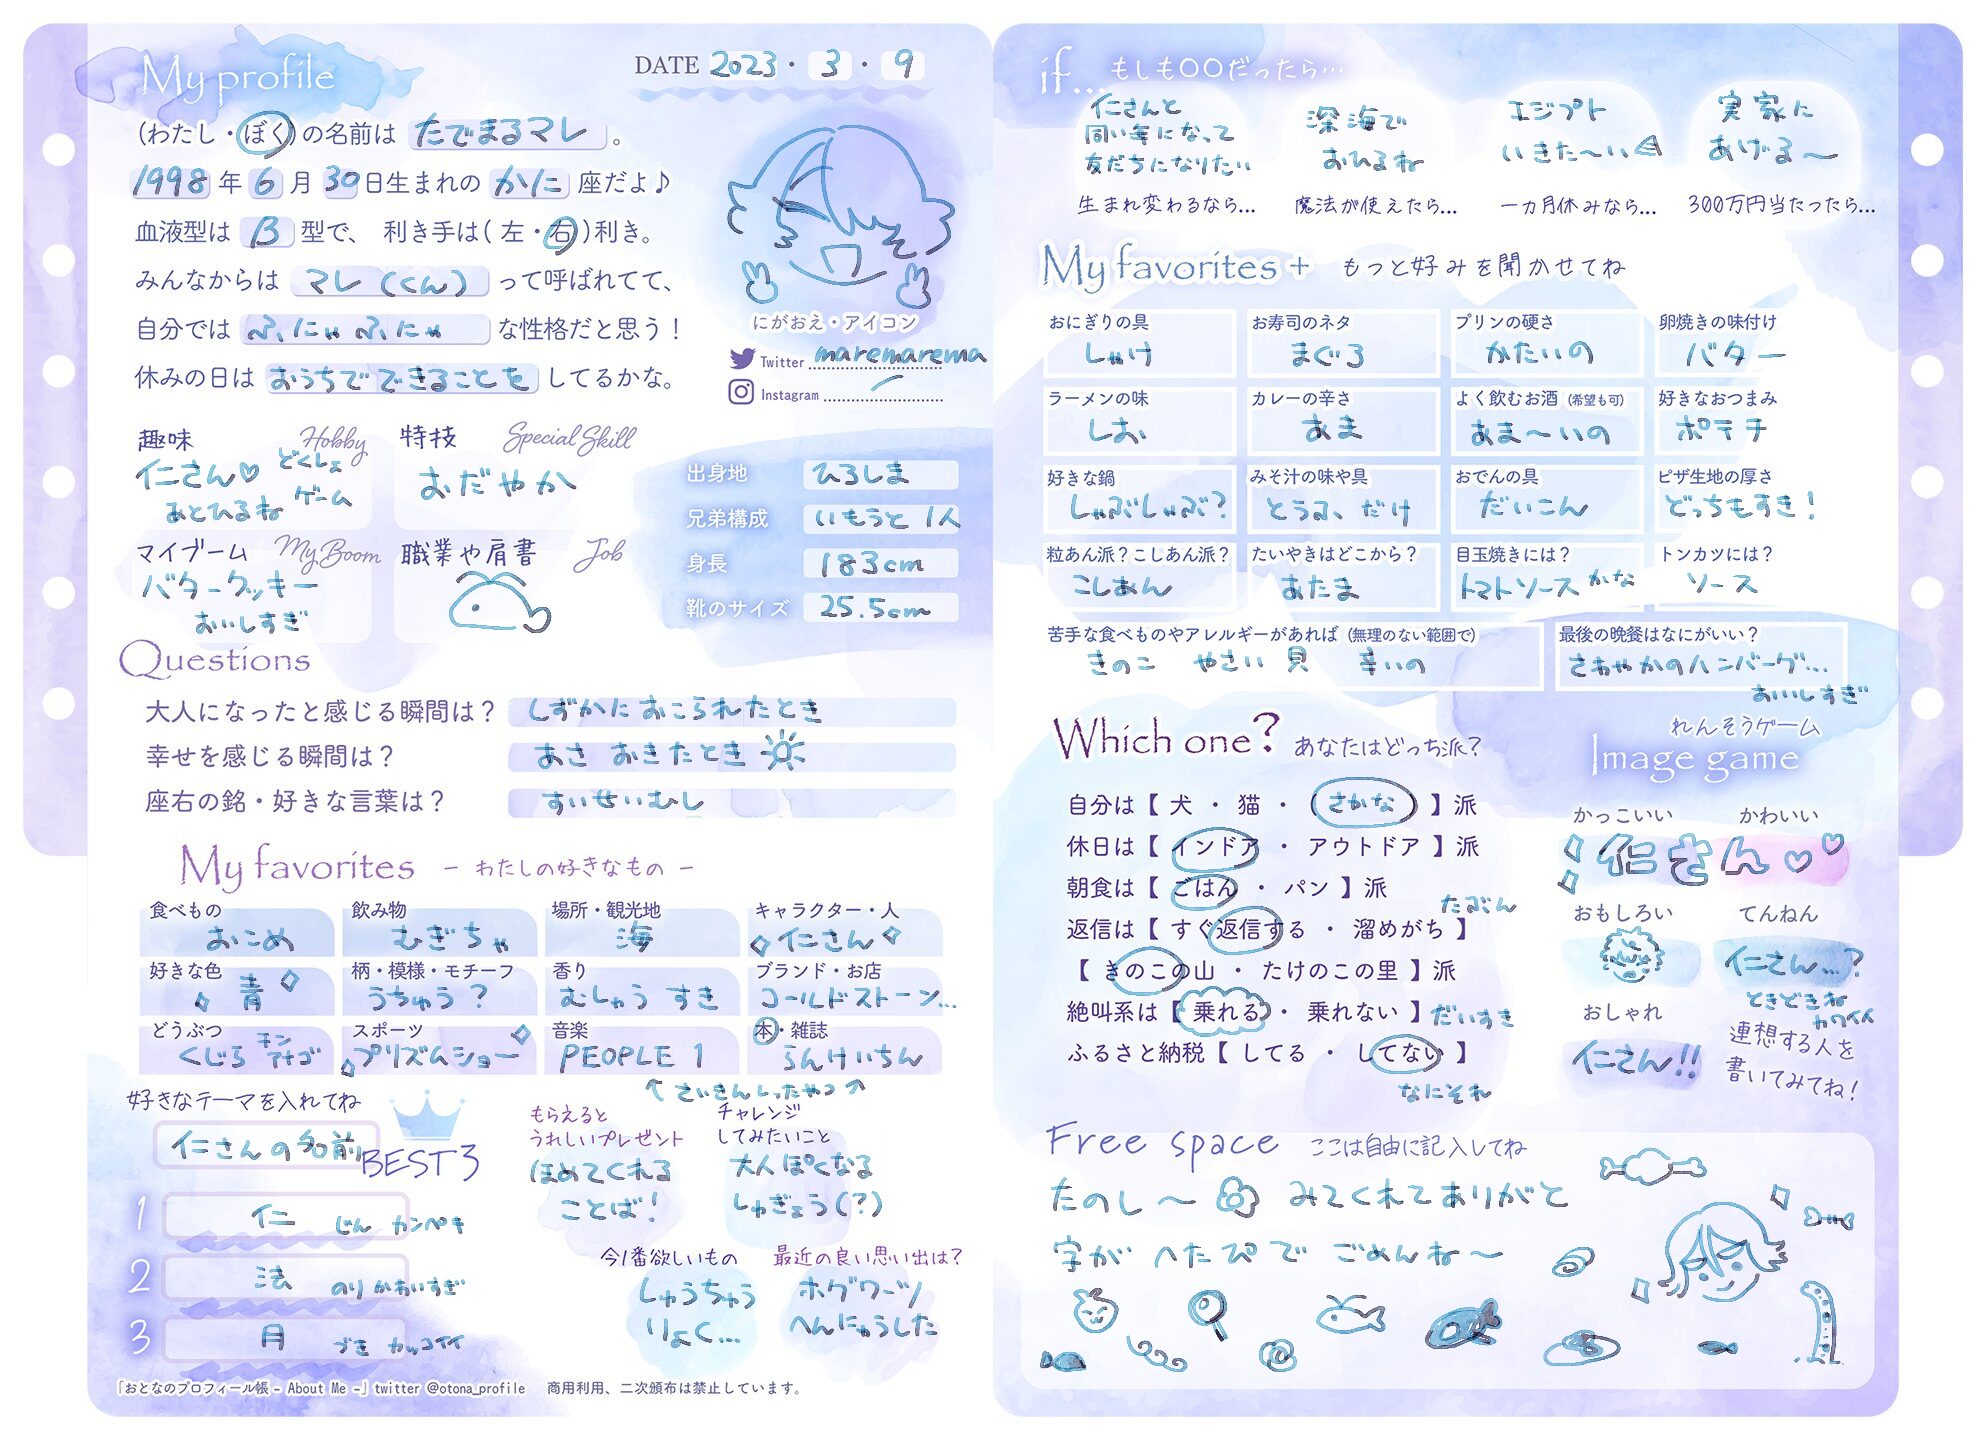 My profile
DATE 2023・3・9
(わたし・ぼく)の名前は たでまるマレ 。
1998 年 6 月 30 日生まれの かに 座だよ♪
血液型は B 型で、 利き手は( 左・右 )利き。
みんなからは マレ (くん) って呼ばれてて、
自分では ふにゃふにゃ な性格だと思う！
休みの日は おうちでできることを してるかな。
にがおえ・アイコン
Twitter maremarema
Instagram
趣味 Hobby
仁さん♡ どくしょ
あとひるね ゲーム
特技 Special Skill
おだやか
マイブーム My Boom
バタークッキー
おいしすぎ
職業や肩書 Job
出身地 ひろしま
兄弟構成 いもうと 1人
身長 183cm
靴のサイズ 25.5cm
Questions
大人になったと感じる瞬間は？ しずかにおこられたとき
幸せを感じる瞬間は？ あさ おきたとき
座右の銘・好きな言葉は？ すいせいむし
My favorites － わたしの好きなもの －
食べもの
おこめ
飲み物
むぎちゃ
場所・観光地
海
キャラクター・人
仁さん
好きな色
青
柄・模様・モチーフ
うちゅう？
香り
むしゅう すき
ブランド・お店
コールドストーン…
どうぶつ
くじら チンアナゴ
スポーツ
プリズムショー
音楽
PEOPLE 1
本・雑誌
らんけいちん
↑ さいきんしったやつ ↗
好きなテーマを入れてね
仁さんの名前
BEST3
1 仁 じん カンペキ
2 法 のり かわいすぎ
3 月 づき カッコイイ
もらえると
うれしいプレゼント
ほめてくれる
ことば！
チャレンジ
してみたいこと
大人ぽくなる
しゅぎょう(？)
今1番欲しいもの
しゅうちゅう
りょく…
最近の良い思い出は？
ホグワーツ
へんにゅうした
「おとなのプロフィール帳 - About Me -」twitter @otona_profile 商用利用、二次頒布は禁止しています。
if... もしも〇〇だったら…
仁さんと
同い年になって
友だちになりたい
生まれ変わるなら…
深海で
おひるね
魔法が使えたら…
エジプト
いきた〜い
一ヵ月休みなら…
実家に
あげる〜
300万円当たったら…
My favorites + もっと好みを聞かせてね
おにぎりの具
しゃけ
お寿司のネタ
まぐろ
プリンの硬さ
かたいの
卵焼きの味付け
バター
ラーメンの味
しお
カレーの辛さ
あま
よく飲むお酒 (希望も可)
あま〜いの
好きなおつまみ
ポテチ
好きな鍋
しゃぶしゃぶ？
みそ汁の味や具
とうふ、だけ
おでんの具
だいこん
ピザ生地の厚さ
どっちもすき！
粒あん派？こしあん派？
こしあん
たいやきはどこから？
あたま
目玉焼きには？
トマトソース かな
トンカツには？
ソース
苦手な食べものやアレルギーがあれば (無理のない範囲で)
きのこ やさい 貝 辛いの
最後の晩餐はなにがいい？
さわやかのハンバーグ…
おいしすぎ
Which one? あなたはどっち派？
自分は【 犬 ・ 猫 ・ ( さかな ) 】派
休日は【 インドア ・ アウトドア 】派
朝食は【 ごはん ・ パン 】派
たぶん
返信は【 すぐ返信する ・ 溜めがち 】
【 きのこの山 ・ たけのこの里 】派
絶叫系は【 乗れる ・ 乗れない 】だいすき
ふるさと納税【 してる ・ してない 】
なにそれ
れんそうゲーム
Image game
かっこいい かわいい
仁さん♡♡
おもしろい てんねん
仁さん…？
ときどきね
カワイイ
おしゃれ
仁さん!!
連想する人を
書いてみてね！
Free space ここは自由に記入してね
たのし〜 みてくれてありがと
字が へたぴで ごめんね〜